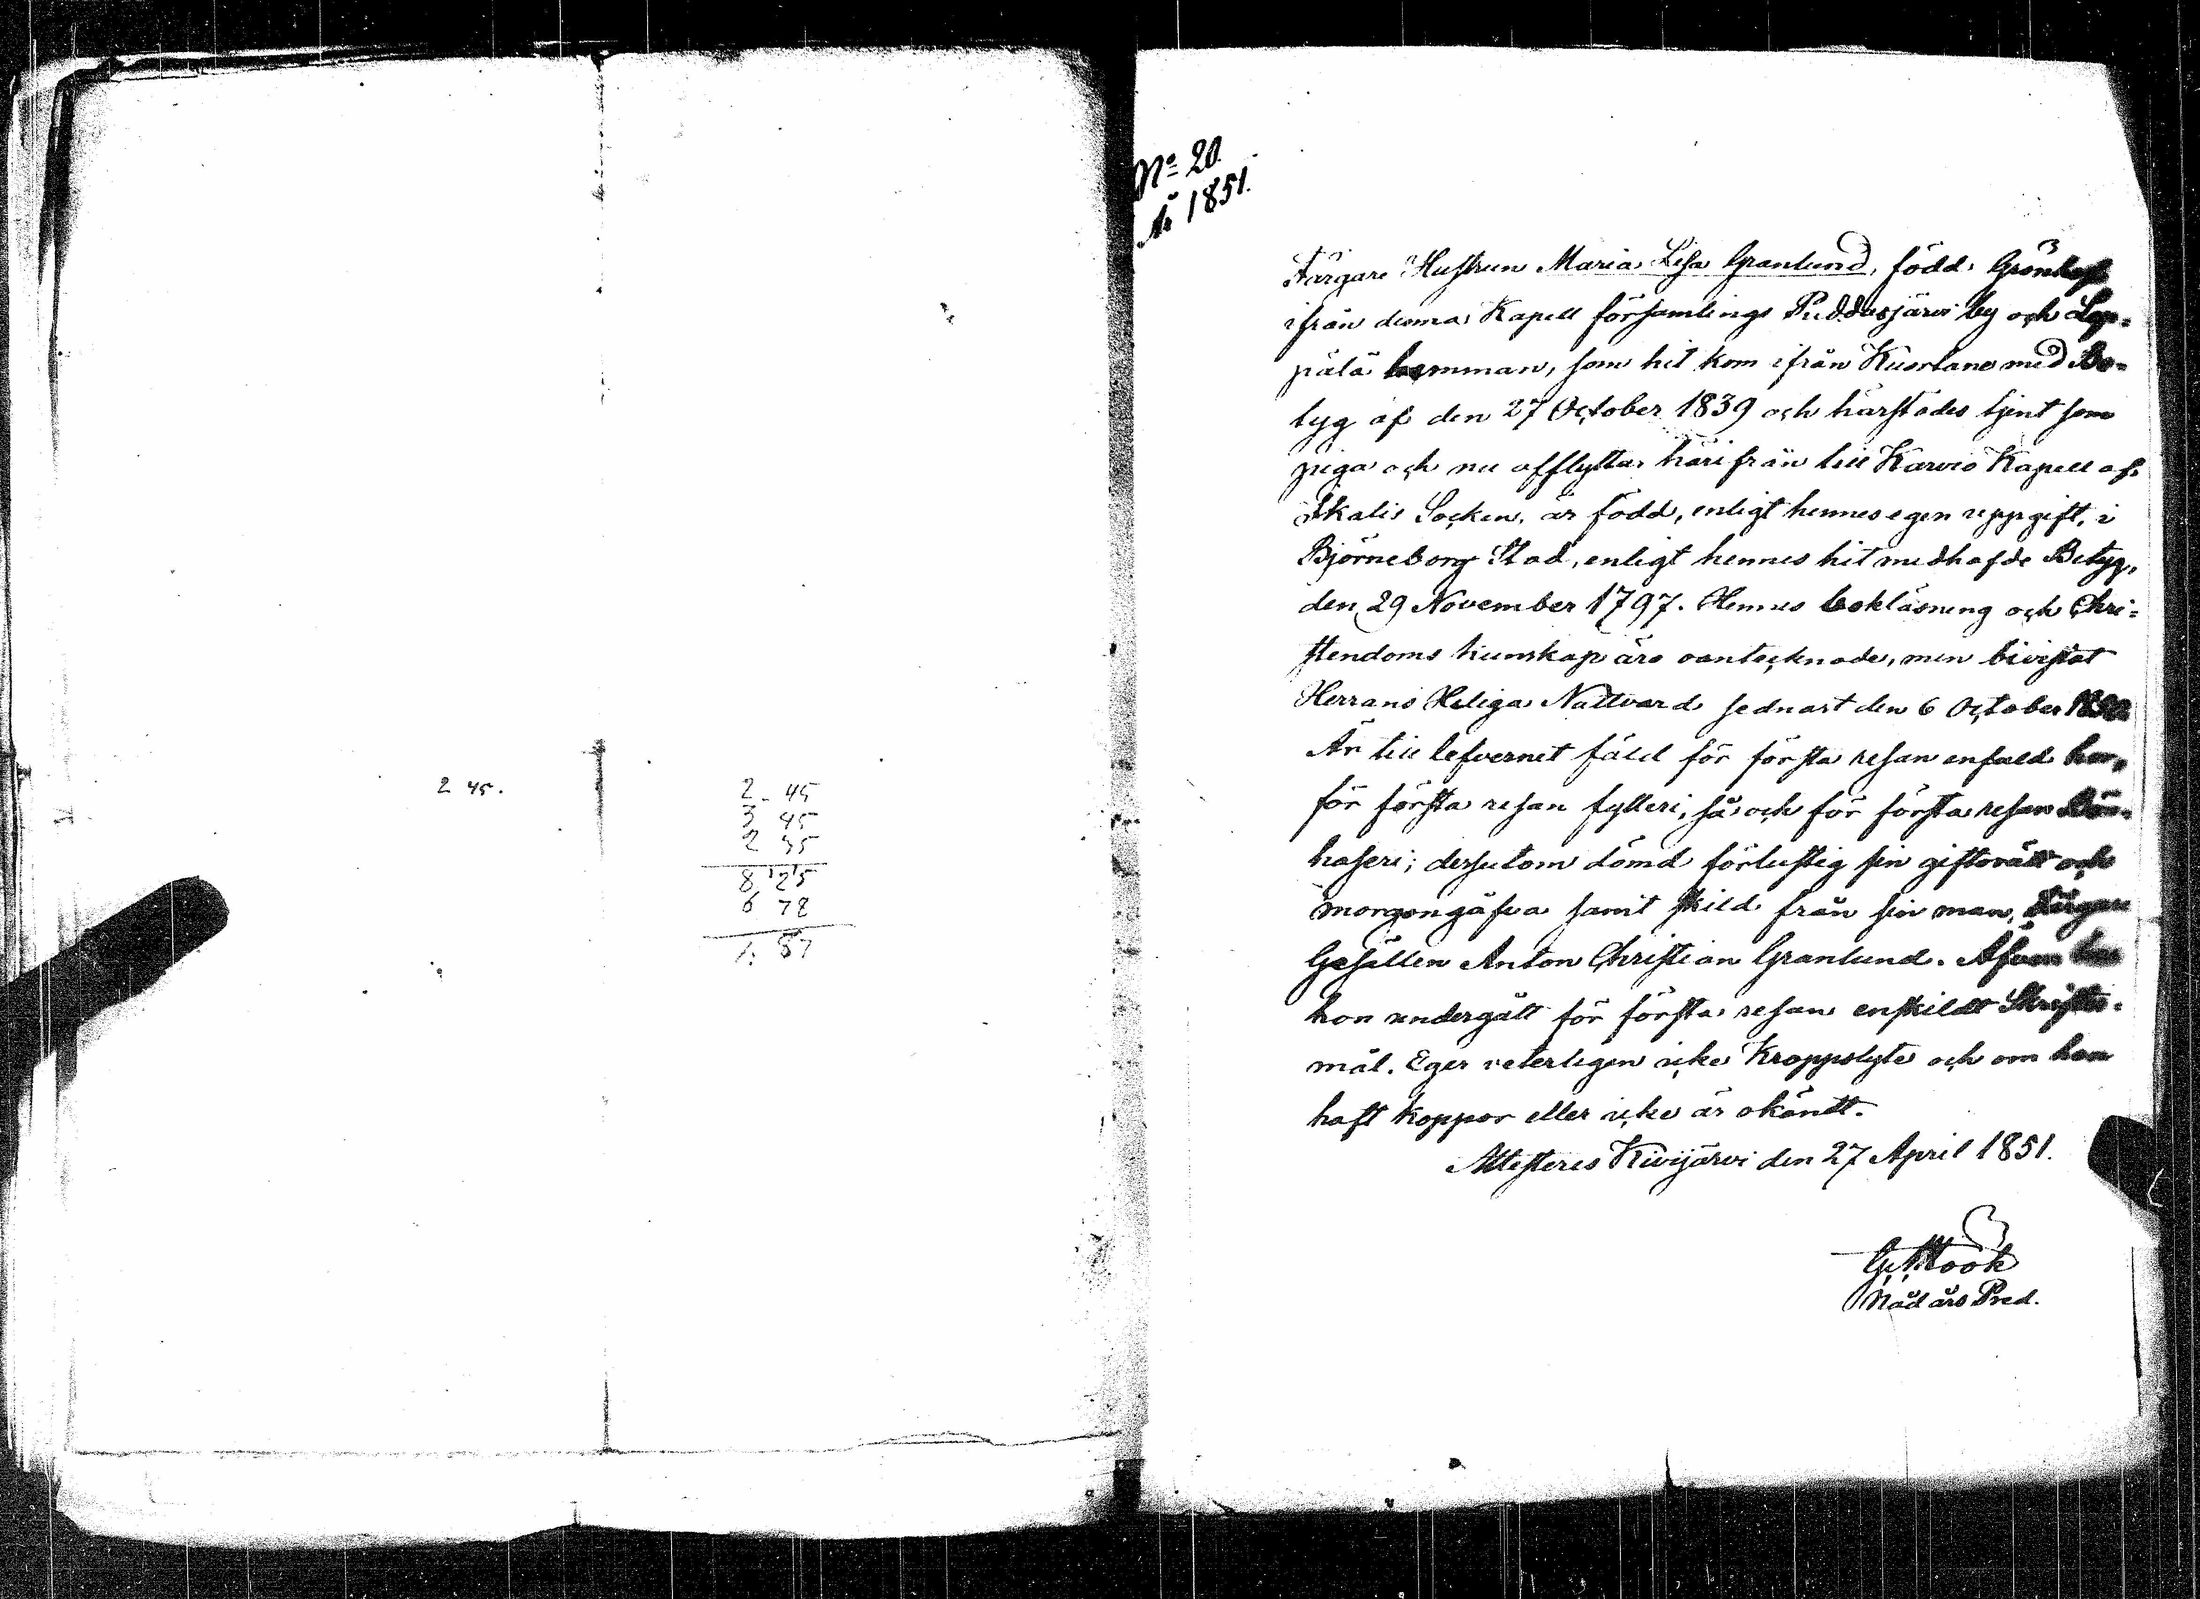 2 45.
2 45
3 45
2 35
8 25
6 78
1. 87
No 20.
År 1851.
Färgare Hustrun Maria Lisa Granlund, född Grönlöf
ifrån denna Kapell församlings Puddasjärvi by och Lep-
pälä hemman, som hit kom ifrån Kuortane med Be-
tyg af den 27 October 1839 och härstädes tjent som
piga och nu afflyttar härifrån till Karvia Kapell af
Ikalis Socken, är född, enligt hennes egen uppgift, i
Björneborg Stad, enligt hennes hit medhafde Betyg,
den 29 November 1797. Hennes bokläsning och Chri-
stendoms kunskap äro oantecknade, men bivistat
Herrans Heliga Nattvard sednast den 6 October
Är till lefvernet fäld för första resan enfald hor,
för första resan fylleri, så och för första resan
haseri; dessutom dömd förlustig sin giftorätt och
morgongåfva samt skild från sin man, Färgare
Gesällen Anton Christian Granlund. Äfven har
hon undergått för första resan enskildt Skrifte-
mål. Eger veterligen icke Kroppslyte och om hon
haft koppor eller icke är okändt.
Attesteres Kivijärvi den 27 April 1851.
Höök
Nådårs Pred.